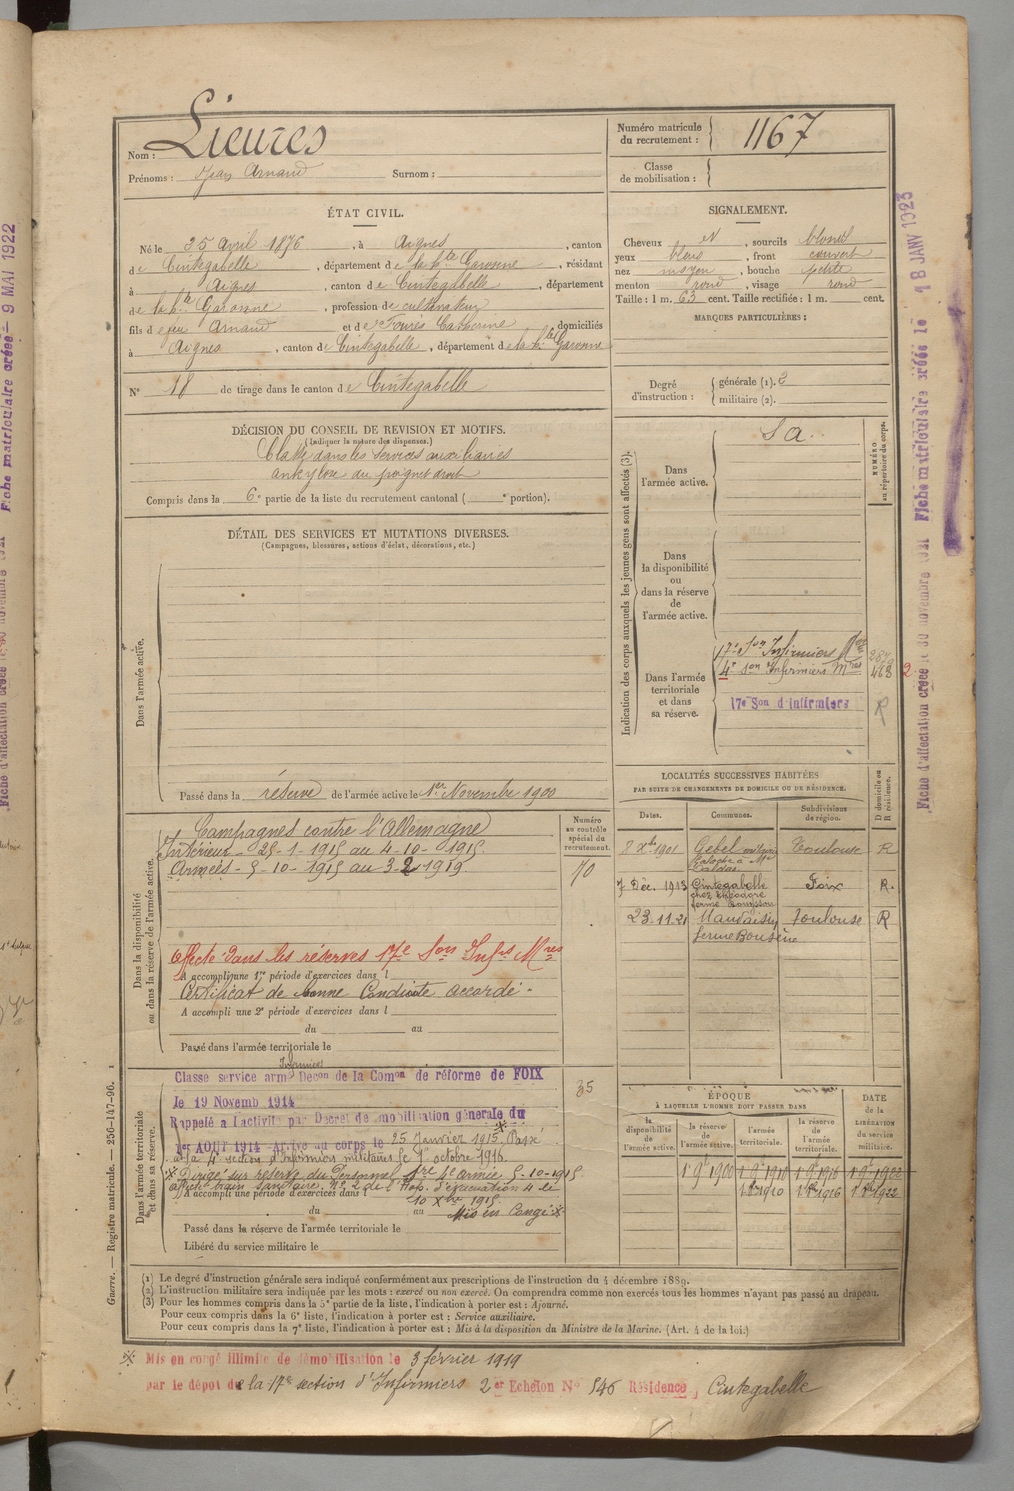 Nom : Lieures
Prénoms : Jean Arnaud Surnom :
Numéro matricule du recrutement : 1167
Classe de mobilisation :
ÉTAT CIVIL.
Né le 25 Avril 1876, à Aignes, canton
de Cintegabelle, département de la hte Garonne, résidant
à Aignes, canton de Cintegabelle, département
de la hte Garonne, profession de cultivateur
fils de feu Arnaud et de Fourès Catherine domiciliés
à Aignes, canton de Cintegabelle, département de la hte Garonne
N° 18 de tirage dans le canton de Cintegabelle
SIGNALEMENT.
Cheveux et, sourcils blonds
yeux bleus, front couvert
nez moyen, bouche petite
menton rond, visage rond
Taille : 1 m. 63 cent. Taille rectifiée : 1 m. cent.
MARQUES PARTICULIÈRES :
Degré d'instruction : générale (1). 3
militaire (2).
DÉCISION DU CONSEIL DE REVISION ET MOTIFS.
(Indiquer la nature des dispenses.)
Classé dans les services auxiliaires
ankylose du poignet droit
Compris dans la 6e partie de la liste du recrutement cantonal ( e portion).
DÉTAIL DES SERVICES ET MUTATIONS DIVERSES.
(Campagnes, blessures, actions d'éclat, décorations, etc.)
Dans l'armée active.
Passé dans la réserve de l'armée active le 1er Novembre 1900
Indication des corps auxquels les jeunes gens sont affectés (3).
NUMÉRO au répertoire du corps.
Dans l'armée active.
S a.
Dans la disponibilité ou dans la réserve de l'armée active.
Dans l'armée territoriale et dans sa réserve.
17e Son Infirmiers Mres
4e Son Infirmiers Mres 463
17e Son d'Infirmiers R
2
LOCALITÉS SUCCESSIVES HABITÉES
PAR SUITE DE CHANGEMENTS DE DOMICILE OU DE RÉSIDENCE.
Dates. Communes. Subdivisions de région. D domicile ou R résidence.
8 Xbre 1901 Gebel Toulouse R
7 Déc. 1913 Cintegabelle Foix R.
chez Théodore
ferme
23-11-21 Mauvaisin Toulouse R
ferme
Dans la disponibilité ou dans la réserve de l'armée active.
Numéro au contrôle spécial du recrutement.
70
Campagnes contre l'Allemagne
Intérieur - 25-1-1915 au 4-10-1915.
Armées - 5-10-1915 au 3-2-1919.
Affecté dans les réserves 17e Son Infrs Mres
A accompli une 1re période d'exercices dans l
Certificat de bonne Conduite accordé -
A accompli une 2e période d'exercices dans l
du au
Passé dans l'armée territoriale le
Dans l'armée territoriale et dans sa réserve.
35
Infirmiers
Classe service armé Décon de la Comon de réforme de FOIX
le 19 Novemb 1914
Rappelé à l'activité par Décret de mobilisation générale du
1er AOUT 1914 - Arrivé au corps le 25 Janvier 1915. Passé
à la 4e section d'Infirmiers militaires le 1er octobre 1916.
Dirigé sur réserve du Personnel 4e armée 5-10-1915
affecté train Sanitaire N° 2 de l'Hop. d'évacuation 4 le
A accompli une période d'exercices dans l
10 Xbre 1915.
du au Mis en Congé
Passé dans la réserve de l'armée territoriale le
Libéré du service militaire le
ÉPOQUE
À LAQUELLE L'HOMME DOIT PASSER DANS
la disponibilité de l'armée active. la réserve de l'armée active. l'armée territoriale. la réserve de l'armée territoriale.
DATE de la LIBÉRATION du service militaire.
1 9bre 1900 1 9bre 1910 1 9bre 1916 1 9bre 1922
1 8bre 1910 1 8bre 1916 1 8bre 1922
(1) Le degré d'instruction générale sera indiqué conformément aux prescriptions de l'instruction du 4 décembre 1889.
(2) L'instruction militaire sera indiquée par les mots : exercé ou non exercé. On comprendra comme non exercés tous les hommes n'ayant pas passé au drapeau.
(3) Pour les hommes compris dans la 5e partie de la liste, l'indication à porter est : Ajourné.
Pour ceux compris dans la 6e liste, l'indication à porter est : Service auxiliaire.
Pour ceux compris dans la 7e liste, l'indication à porter est : Mis à la disposition du Ministre de la Marine. (Art. 4 de la loi.)
Mis en congé illimité de démobilisation le 3 février 1919
par le dépôt de la 17e section d'Infirmiers 2er Echelon N° 546 Résidence, Cintegabelle
Guerre. — Registre matricule. — 256-147-96.
Fiche matriculaire créée le 18 JANV 1923
Fiche d'affectation créée le 30 novembre
Fiche matriculaire créée - 9 MAI 1922
Fiche d'affectation créée le 30 novembre 1921